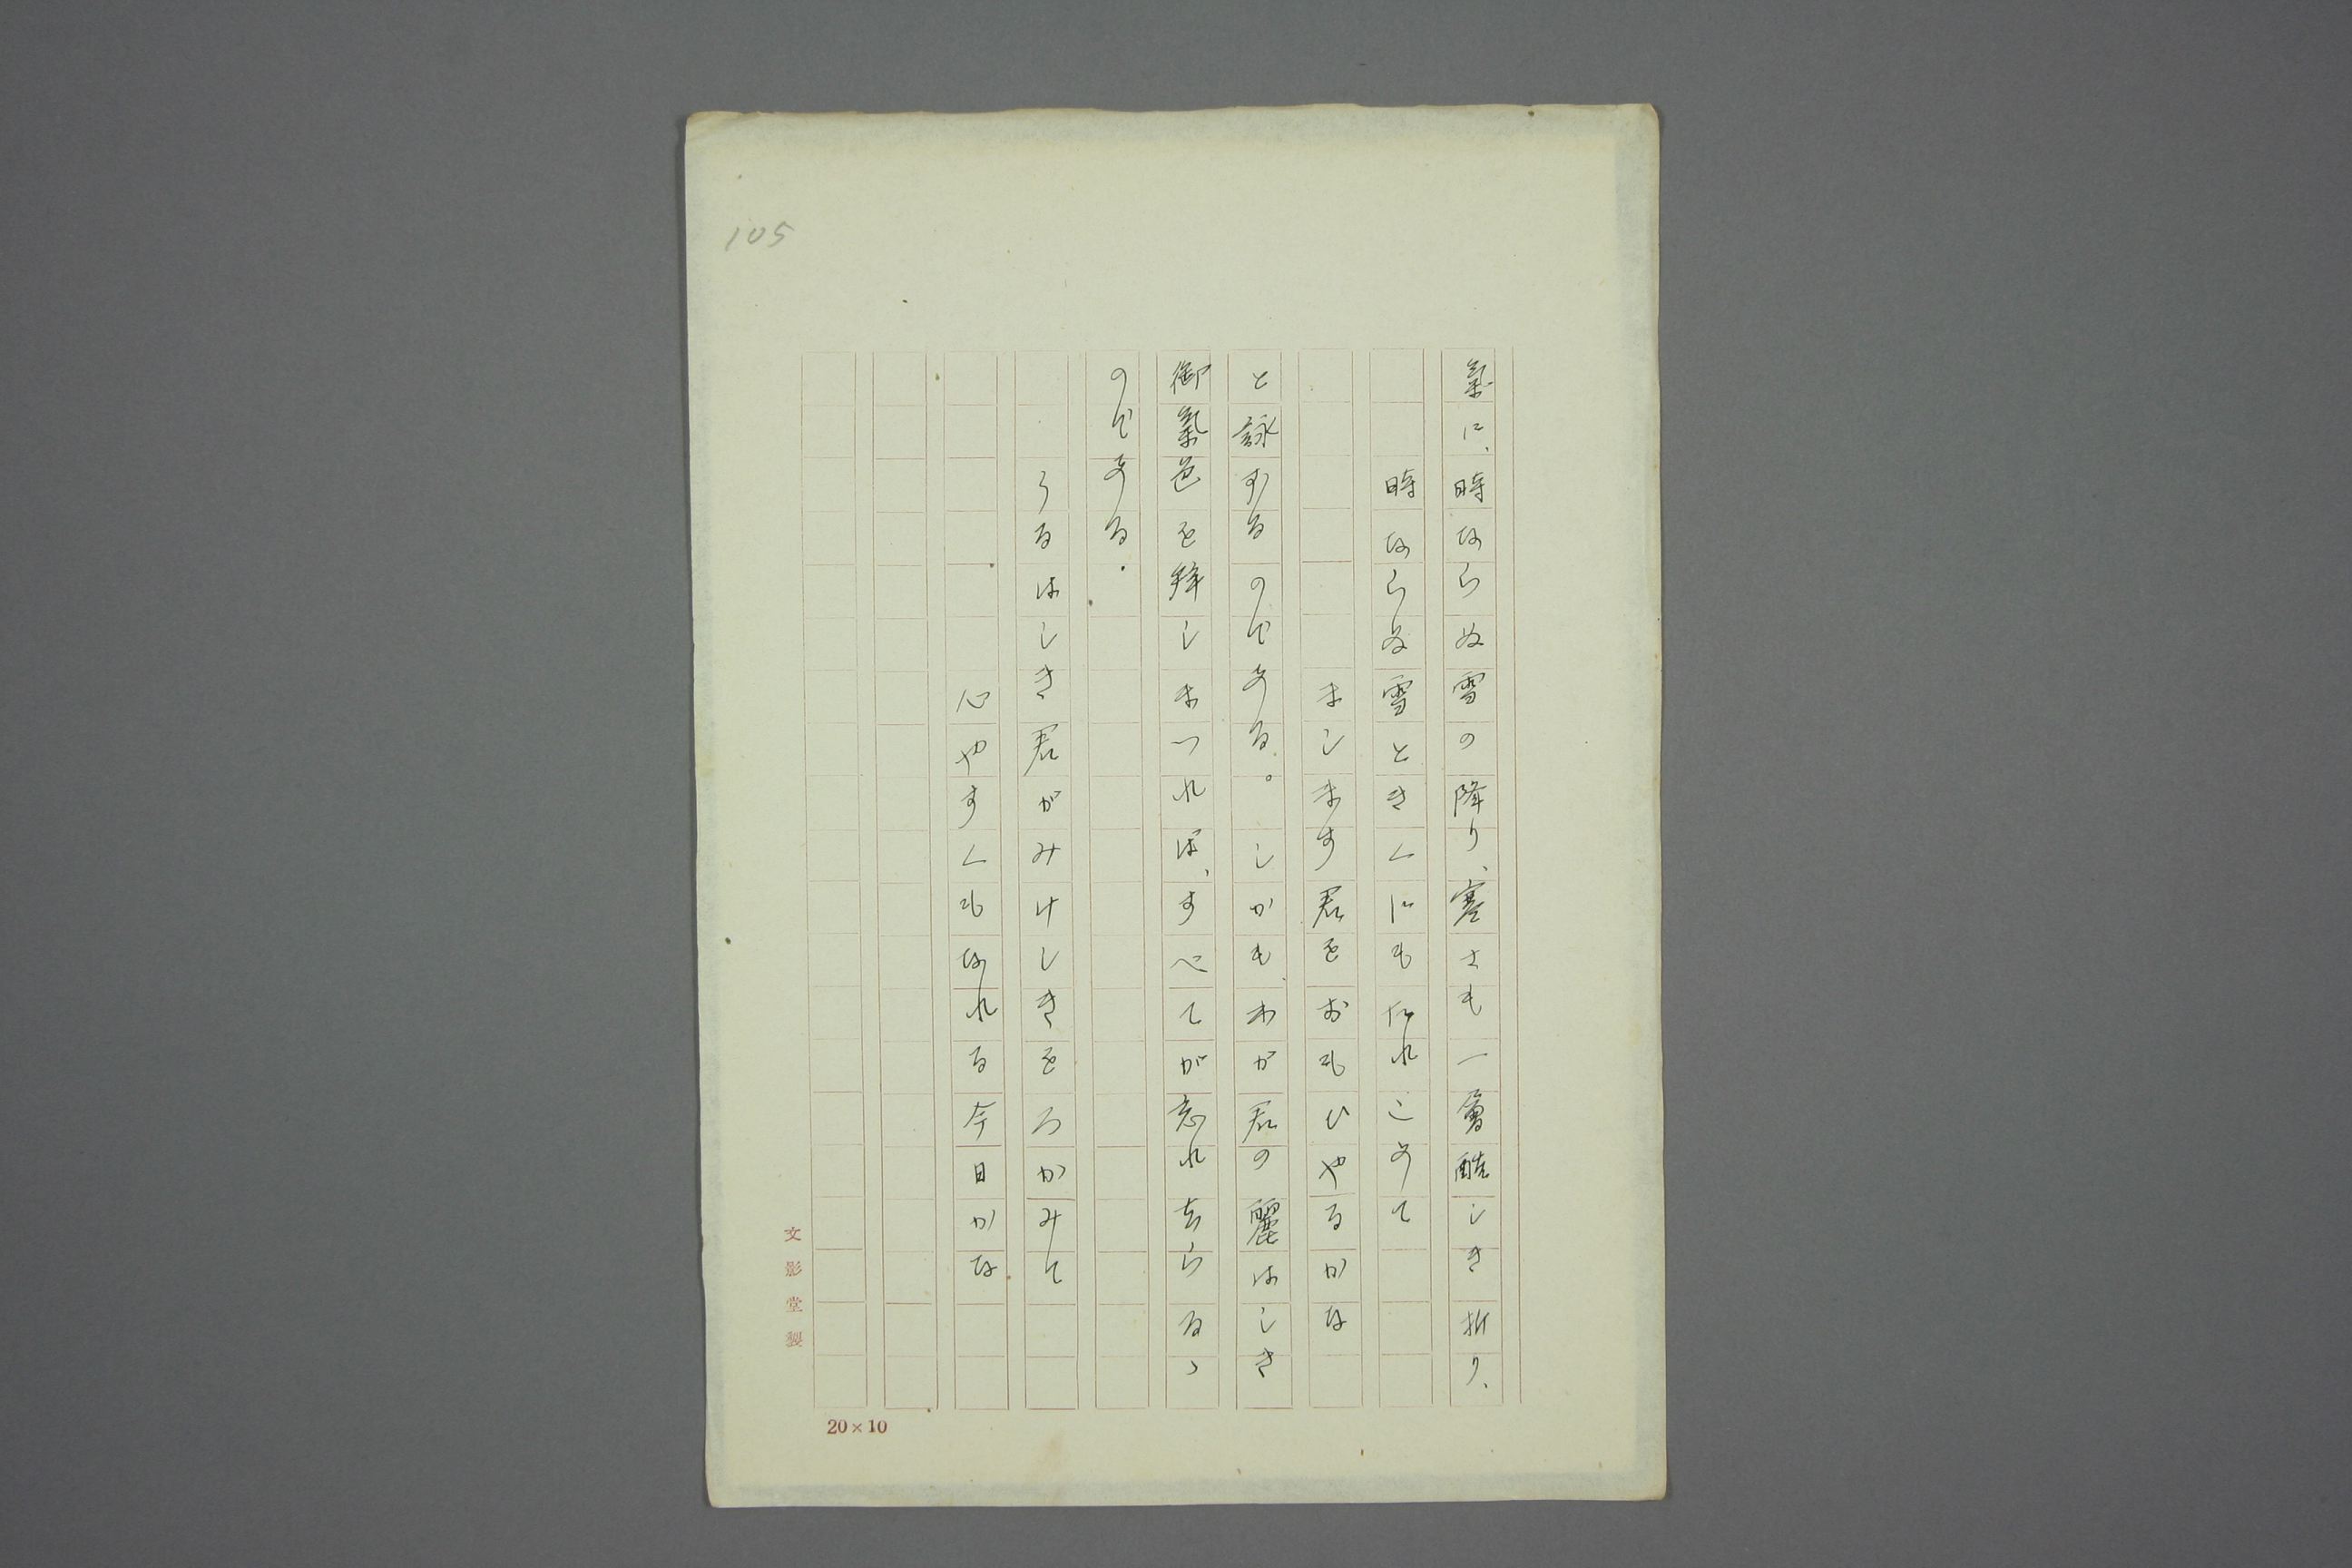 105
氣に、時ならぬ雪の降り、寒さも一層酷しき折り、
時ならぬ雪ときくにもたれこめて
まします君をおもひやるかな
と詠ずるのである。しかもわが君の麗はしき
御氣色を拜しまつれば、すべてが忘れ去らるゝ
のである。
うるはしき君がみけしきをろかみて
心やすくもなれる今日かな
文影堂製
20×10